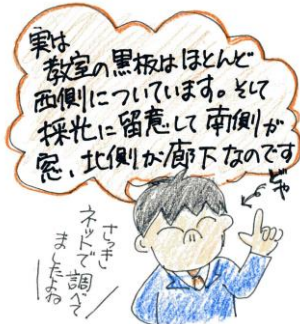 実は
教室の黒板はほとんど
西側についています。そして
採光に留意して南側が
窓、北側が廊下なのです
どや
さっき
ネットで調べて
ましたよね